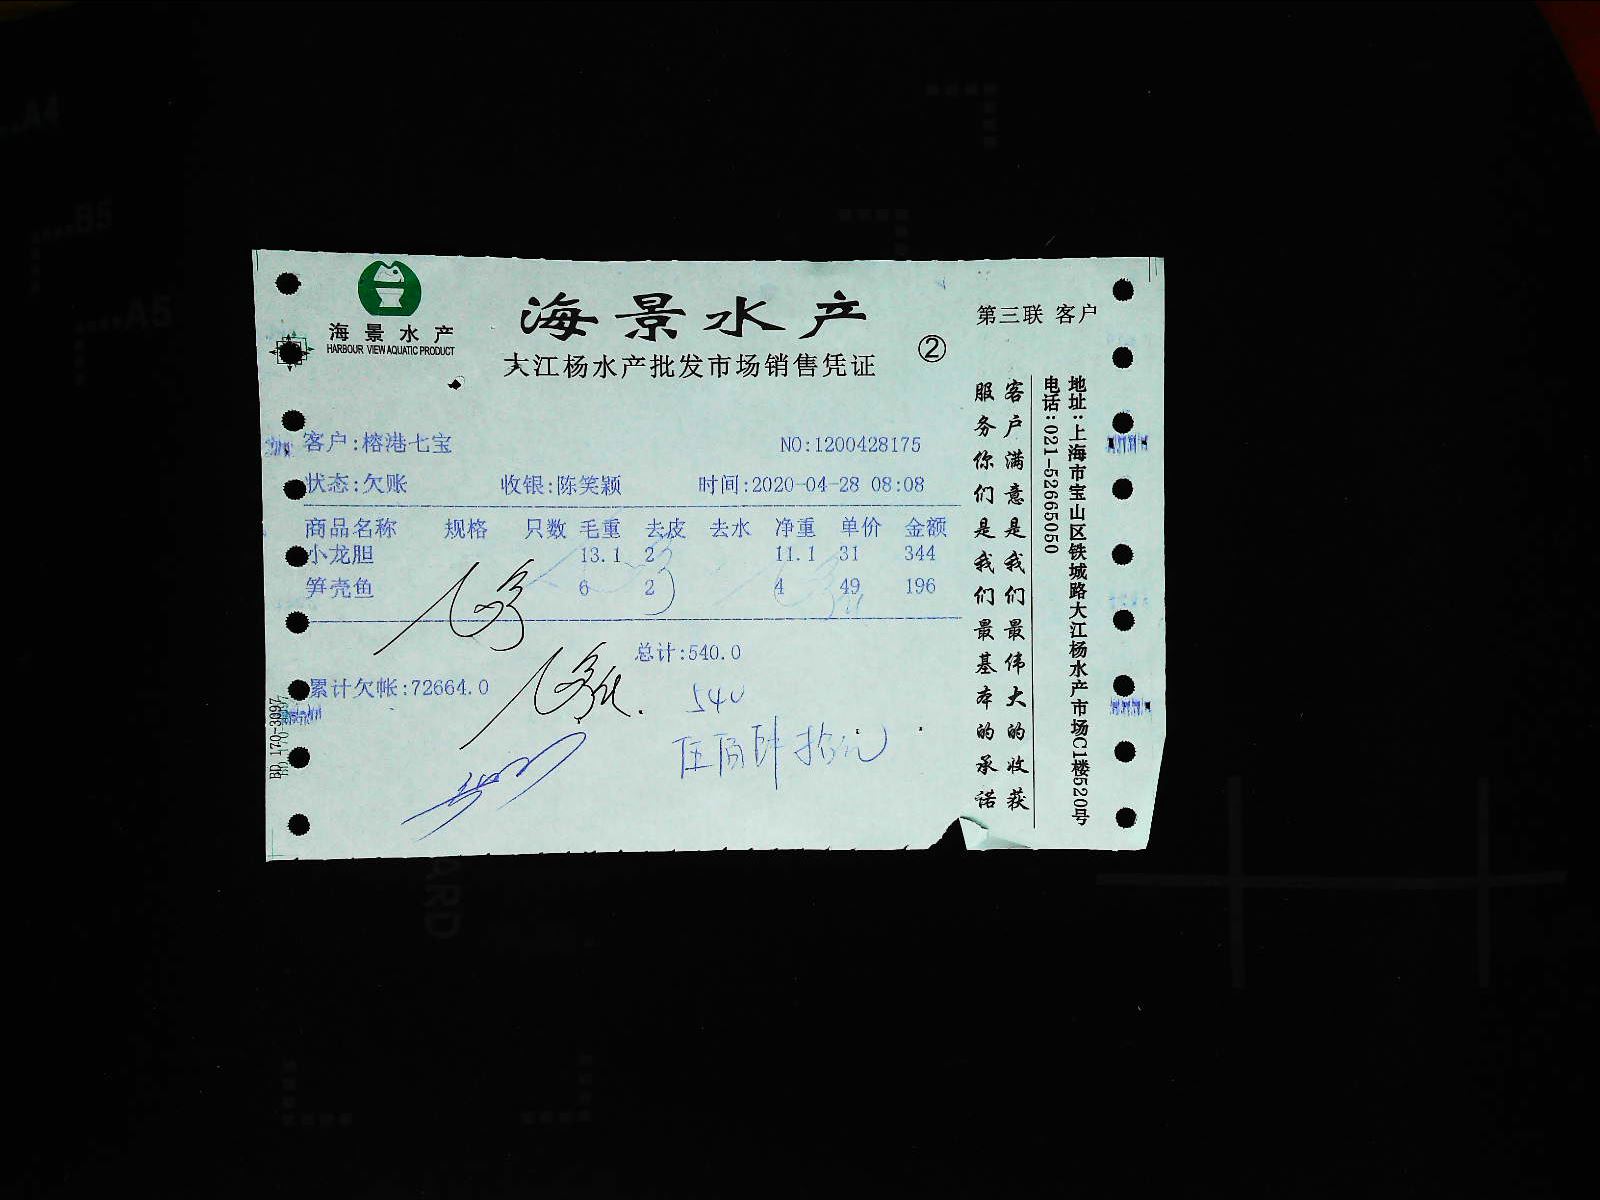 海景水产
HARBOUR VIEW AQUATIC PRODUCT
海景水产
大江杨水产批发市场销售凭证
②
第三联 客户
客户:榕港七宝 NO:1200428175
状态:欠账 收银:陈笑颖 时间:2020-04-28 08:08
商品名称 规格 只数 毛重 去皮 去水 净重 单价 金额
小龙胆 13.1 2 11.1 31 344
笋壳鱼 6 2 4 49 196
总计:540.0
累计欠帐:72664.0
540
伍佰肆拾元
客户满意是我们最伟大的收获
服务你们是我们最基本的承诺
地址:上海市宝山区铁城路大江杨水产市场C1楼520号
电话:021-52665050
A4
B5
A5